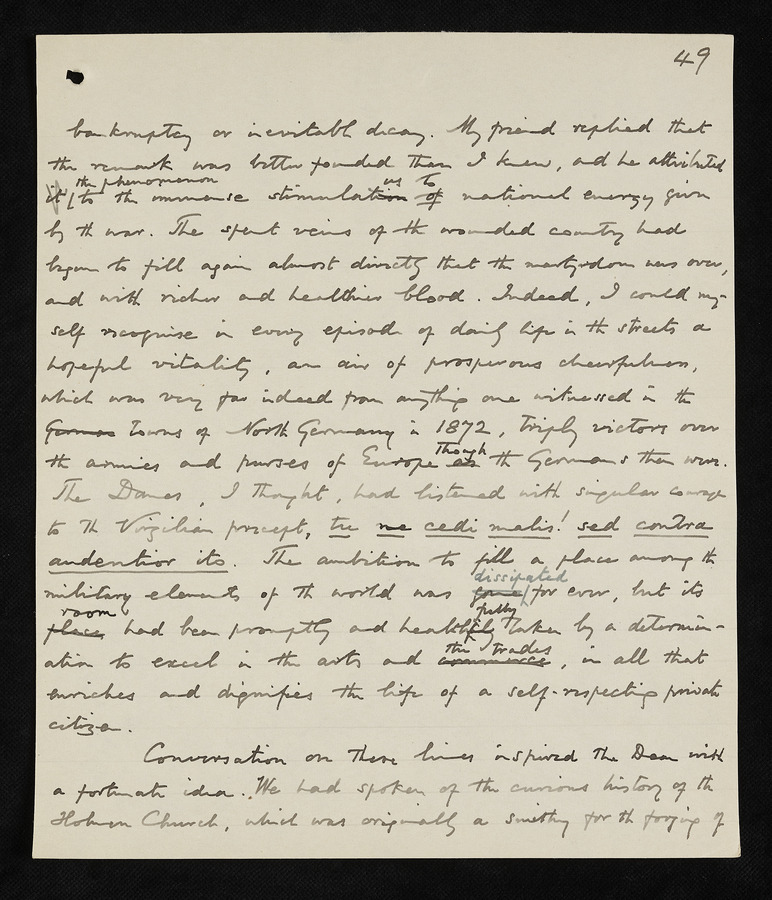 49
bankruptcy or inevitable decay. My friend replied that
the remark was better founded than I knew, and he attributed
the phenomenon us to
it to the immense stimulation of national energy given
by the war. The spent veins of the wounded country had
begun to fill again almost directly that the martyrdom was over,
and with richer and healthier blood. Indeed, I could my-
self recognise in every episode of daily life in the streets a
hopeful vitality, an air of prosperous cheerfulness,
which was very far indeed from anything one witnessed in the
German towns of North Germany in 1872, triply victors over
though
the armies and purses of Europe as the Germans then were.
The Danes, I thought, had listened with singular courage
to the Virgilian precept, tu ne cedi malis! sed contra
audentior ito. The ambition to fill a place among the
dissipated
military elements of the world was gone for ever, but its
room fully
place had been promptly and healthily taken by a determin-
the trades
ation to excel in the arts and commerce, in all that
enriches and dignifies the life of a self-respecting private
citizen.
Conversation on these lines inspired the Dean with
a fortunate idea. We had spoken of the curious history of the
Holmen Church, which was originally a smithy for the forging of